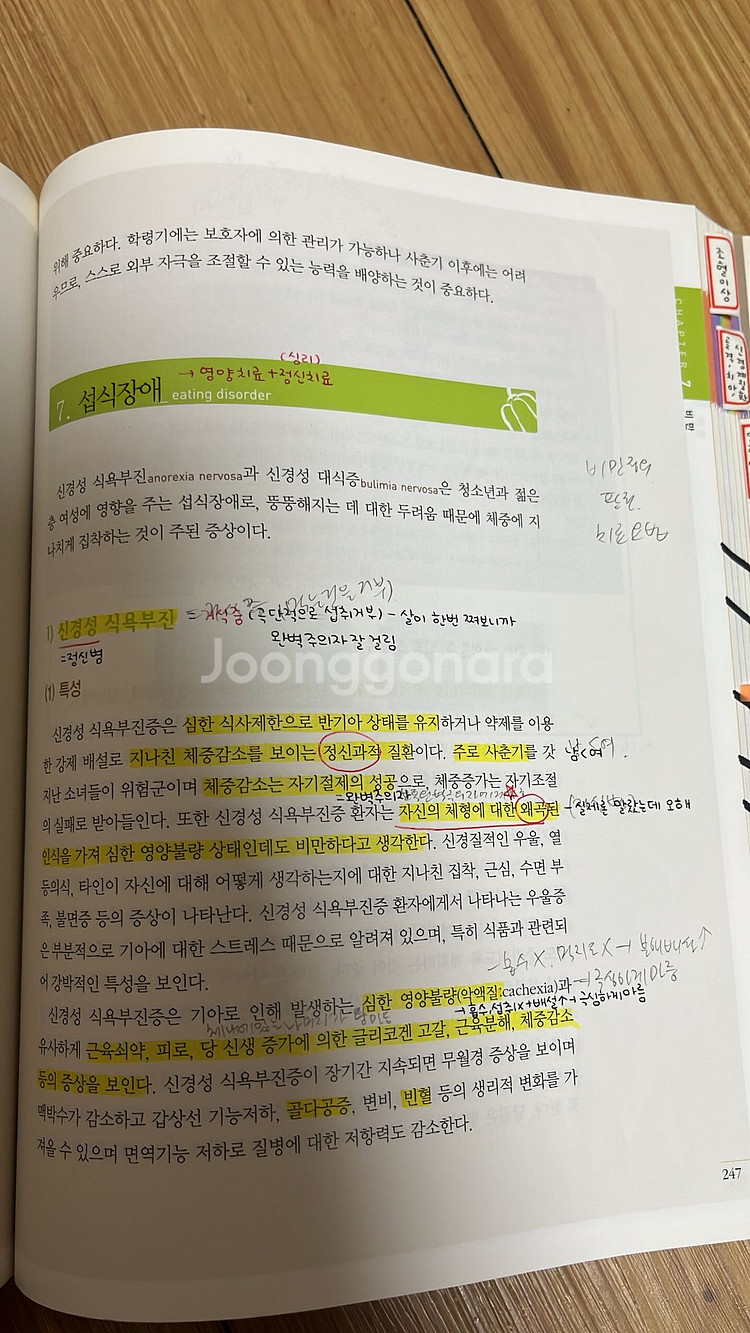 위해 중요하다. 학령기에는 보호자에 의한 관리가 가능하나 사춘기 이후에는 어려
우므로, 스스로 외부 자극을 조절할 수 있는 능력을 배양하는 것이 중요하다.
조혈이상
CHAPTER 7
비만
(심리)
→ 영양치료+정신치료
7. 섭식장애 eating disorder
신경성 식욕부진anorexia nervosa과 신경성 대식증bulimia nervosa은 청소년과 젊은
층 여성에 영향을 주는 섭식장애로, 뚱뚱해지는 데 대한 두려움 때문에 체중에 지
나치게 집착하는 것이 주된 증상이다.
비만적의
판정
치료요법
1) 신경성 식욕부진 = 거식증 (극단적으로 섭취거부) - 살이 한번 쪄보니까
=정신병
완벽주의자 잘 걸림
Joonggonara
(1) 특성
신경성 식욕부진증은 심한 식사제한으로 반기아 상태를 유지하거나 약제를 이용
한 강제 배설로 지나친 체중감소를 보이는 정신과적 질환이다. 주로 사춘기를 갓 남<여.
지난 소녀들이 위험군이며 체중감소는 자기절제의 성공으로, 체중증가는 자기조절
=완벽주의자
의 실패로 받아들인다. 또한 신경성 식욕부진증 환자는 자신의 체형에 대한 왜곡된 실제론 말랐는데 오해
인식을 가져 심한 영양불량 상태인데도 비만하다고 생각한다. 신경질적인 우울, 열
등의식, 타인이 자신에 대해 어떻게 생각하는지에 대한 지나친 집착, 근심, 수면 부
족, 불면증 등의 증상이 나타난다. 신경성 식욕부진증 환자에게서 나타나는 우울증
은 부분적으로 기아에 대한 스트레스 때문으로 알려져 있으며, 특히 식품과 관련되
어 강박적인 특성을 보인다.
신경성 식욕부진증은 기아로 인해 발생하는 심한 영양불량(악액질:cachexia)과
→흡수,섭취X+배설↑→극심하게마름
유사하게 근육쇠약, 피로, 당 신생 증가에 의한 글리코겐 고갈, 근육분해, 체중감소
등의 증상을 보인다. 신경성 식욕부진증이 장기간 지속되면 무월경 증상을 보이며
맥박수가 감소하고 갑상선 기능저하, 골다공증, 변비, 빈혈 등의 생리적 변화를 가
져올 수 있으며 면역기능 저하로 질병에 대한 저항력도 감소한다.
247